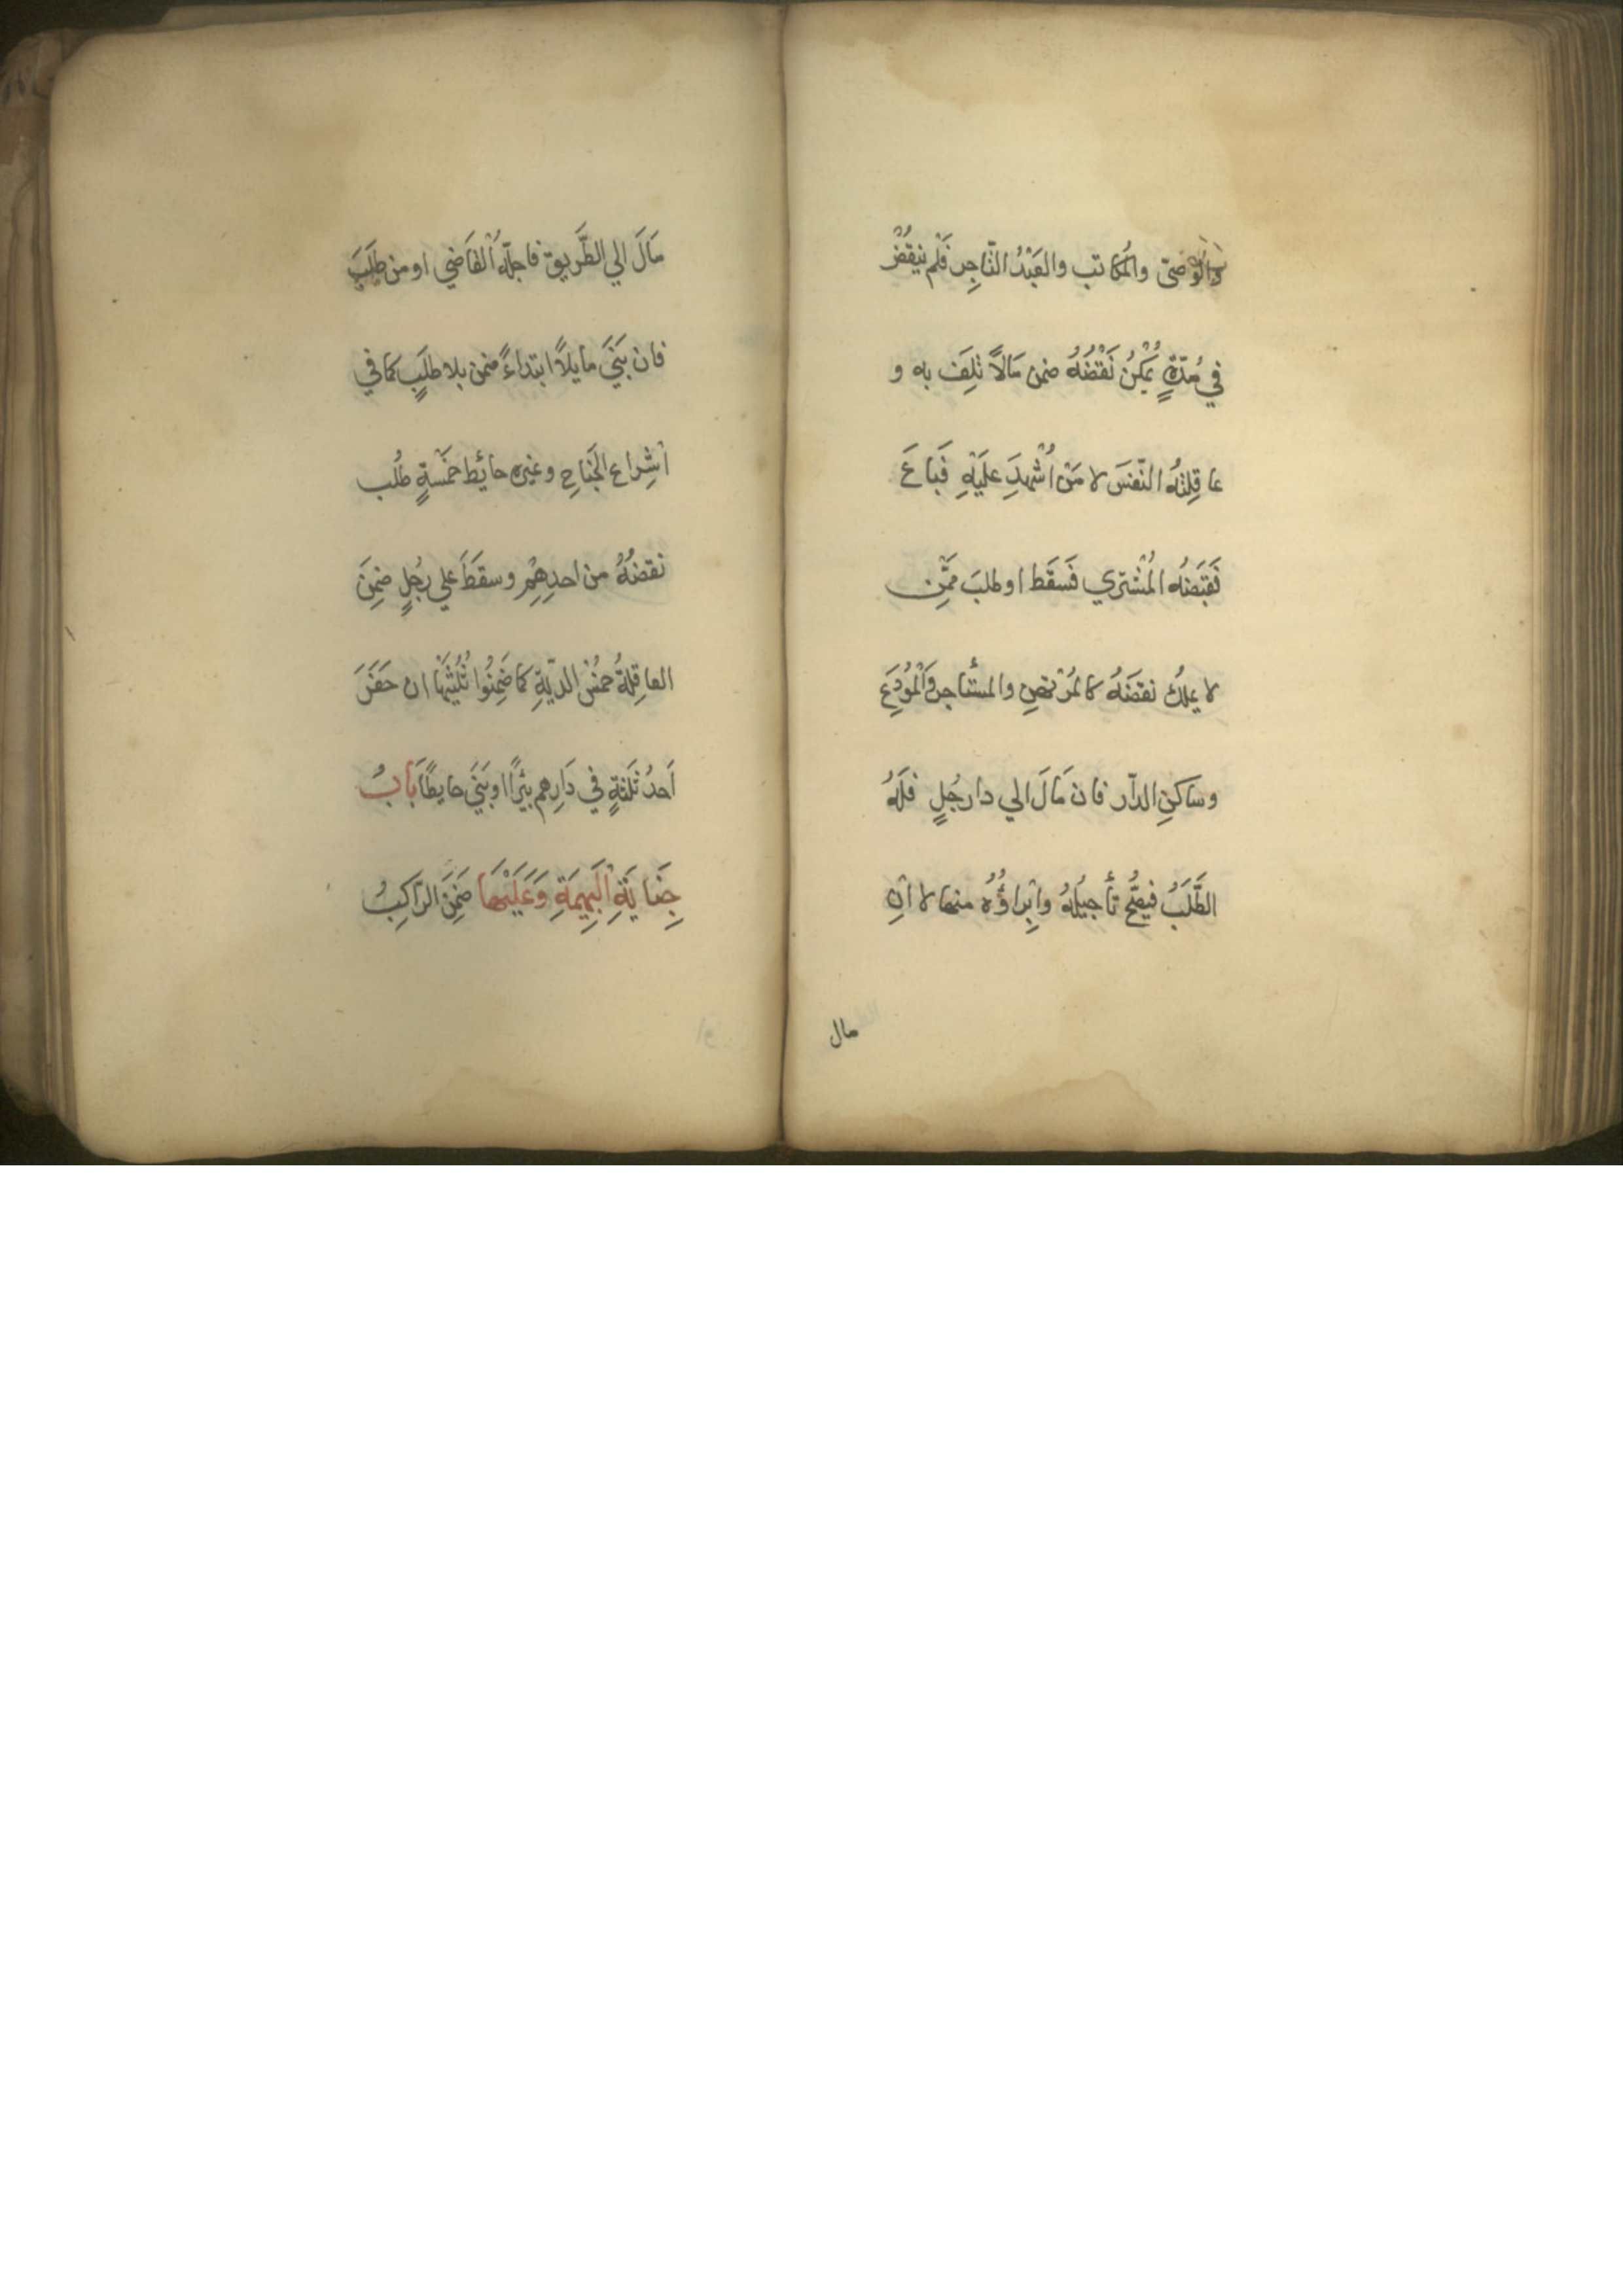 والوَصيّ والمُكاتب والعَبْدُ التّاجِر فَلم يَنقُضْ
في مُدّةٍ يُمكِنُ نَقْضُهُ ضمن مَالاً تلِفَ به و
عاقِلتُهُ النّفسَ لا مَنْ اُشْهِدَ علَيْهِ فَباعَ
فقبَضهُ المُشتري فَسَقَط او طلبَ ممَّن
لا يملك نقضَهُ كالمُرْتهنِ والمستأجر والمُودَعِ
وساكنِ الدّار فان مَالَ الي دار رجُلٍ فلَهُ
الطَّلَبُ فيصِحُّ تأجيلُهُ وابْراؤُهُ منها لا انِ
مال
مَالَ الي الطَّريق فاجلّهُ القَاضي او من طلَبَ
فان بَنَيَ مايلاً ابتداءً ضمن بلا طلَبٍ كما في
اشِراع الجَناحِ وغيره حائِط خمْسةٍ طُلب
نقضُهُ من احدِهِم وسقَطَ علي رجُلٍ ضمِنَ
العاقِلةُ خمُسَ الدّيَةِ كما ضَمِنُوا ثُلُثَيْهَا ان حَفَرَ
اَحدُ ثَلثةٍ في دَارِهم بئْرًا اوبَنَيَ حايطًا بَابُ
جِنَايَةِ الْبَهِيمَةِ وَعَلَيْهَا ضَمِنَ الرّاكِبُ